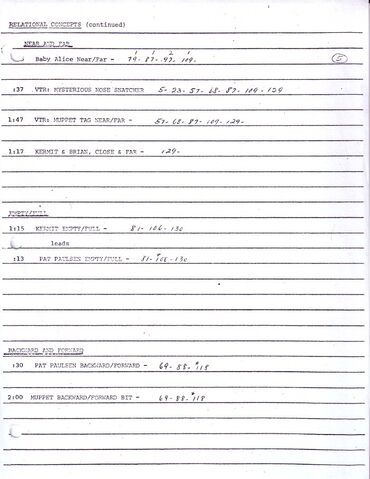 RELATIONAL CONCEPTS (continued)
NEAR AND FAR
1 1 2 1
Baby Alice Near/Far - 79- 87- 97- 109- 5
:37 VTR: MYSTERIOUS NOSE SNATCHER 5- 23- 57- 68- 87- 109- 129
1:47 VTR: MUPPET TAG NEAR/FAR - 57- 68- 87- 109- 129-
1:17 KERMIT & BRIAN, CLOSE & FAR - 129-
EMPTY/FULL
1:15 KERMIT EMPTY/FULL - 81- 106- 130
leads
:13 PAT PAULSEN EMPTY/FULL - 81- *106- 130
BACKWARD AND FORWARD
:30 PAT PAULSEN BACKWARD/FORWARD - 64- 88- *118
2:00 MUPPET BACKWARD/FORWARD BIT - 64- 88- *118